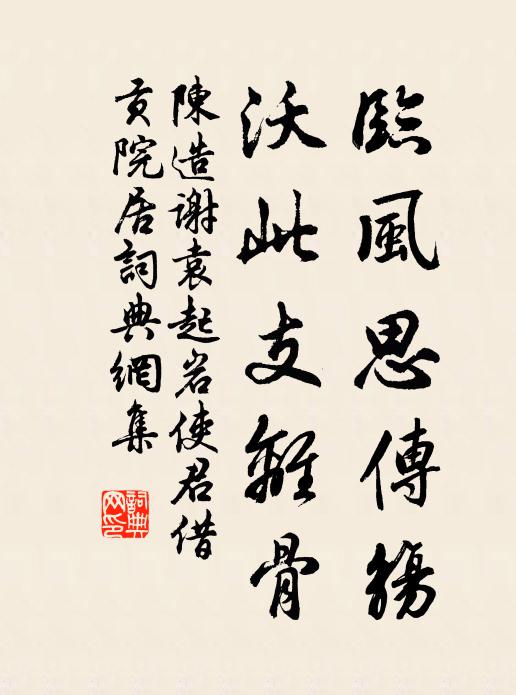 臨風思傳觴
沃此支離骨
陳造謝袁起岩使君借
貢院居詞典網集
詞典网印